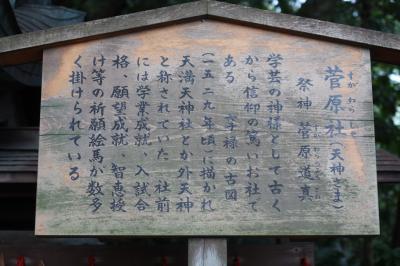 菅原社(天神さま)
すがわらしゃ
祭神 菅原道真
すがわらみちざね
学芸の神様として古く
から信仰の篤いお社て
ある 享禄の古図
(一五二九年頃に描かれ
天満天神社とか外天神
と称されていた 社前
には学業成就、入試合
格、願望成就、智恵授
け等の祈願絵馬か数多
く掛けられている